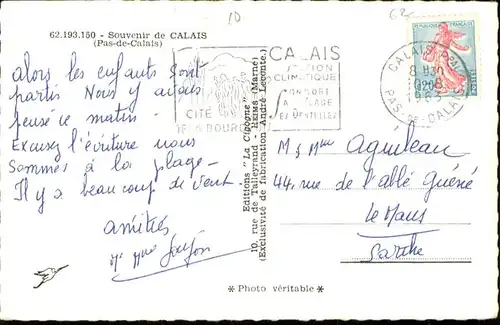 10
62
62.193.150 - Souvenir de CALAIS
(Pas-de-Calais)
Alors les enfants sont
partis Nous y avons
pensé ce matin -
Excusez l'écriture nous
sommes à la plage -
Il y a beaucoup de vent
amitiés
Mr Mme
Editions "La Cigogne"
10, rue de Talleyrand - REIMS (Marne)
(Exclusivité de fabrication André Leconte.)
CITÉ
DES 6 BOURGEOIS
CALAIS
STATION
CLIMATIQUE
SON PORT
SA PLAGE
SES DENTELLES
CALAIS PPAL
8 H30
1963
PAS-DE-CALAIS
M & Mme Aguileau
44, rue de l'abbé Guéné
Le Mans
Sarthe
* Photo véritable *